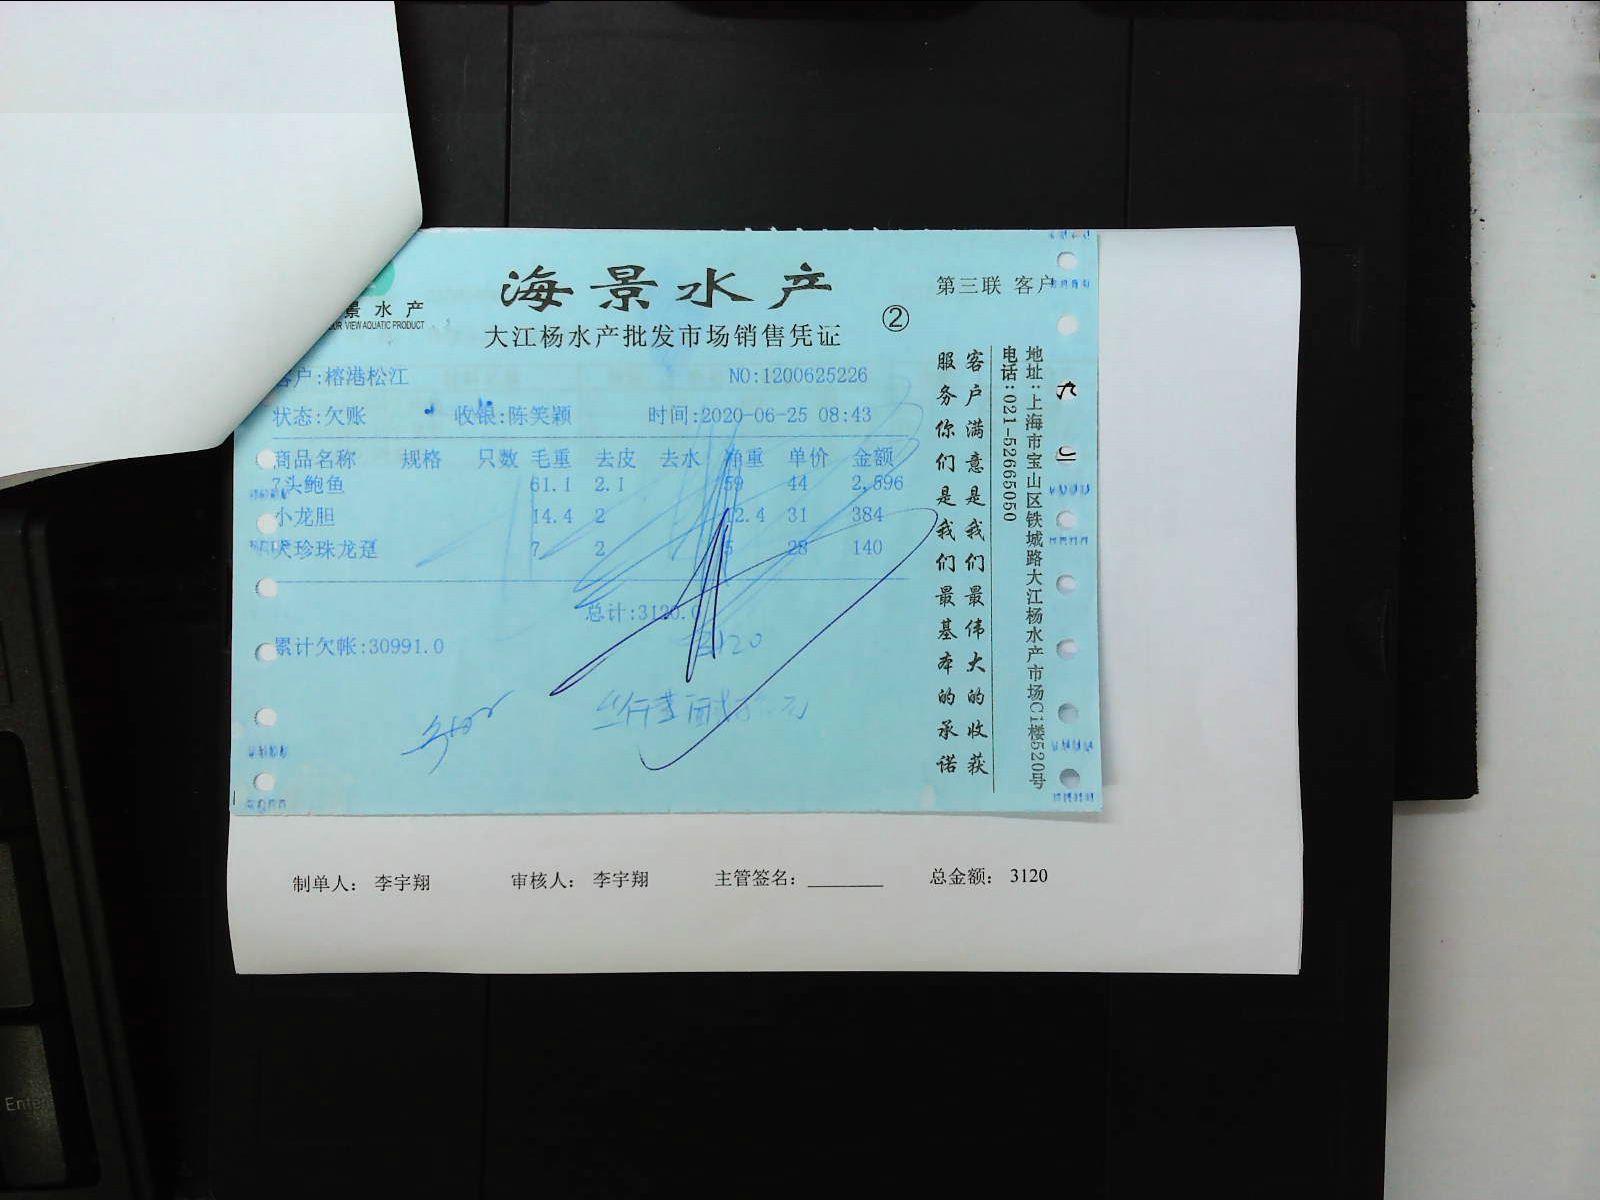 海景水产
景水产
UR VIEW AQUATIC PRODUCT
大江杨水产批发市场销售凭证
②
第三联 客户
客户:榕港松江
NO:1200625226
状态:欠账 收银:陈笑颖 时间:2020-06-25 08:43
商品名称 规格 只数 毛重 去皮 去水 净重 单价 金额
7头鲍鱼 61.1 2.1 59 44 2,596
小龙胆 14.4 2 12.4 31 384
大珍珠龙趸 7 2 5 28 140
总计:3120.0
累计欠帐:30991.0
3120
客户满意是我们最伟大的收获
服务你们是我们最基本的承诺
地址:上海市宝山区铁城路大江杨水产市场C1楼520号
电话:021-52665050
制单人: 李宇翔 审核人: 李宇翔 主管签名: ________ 总金额: 3120
Enter